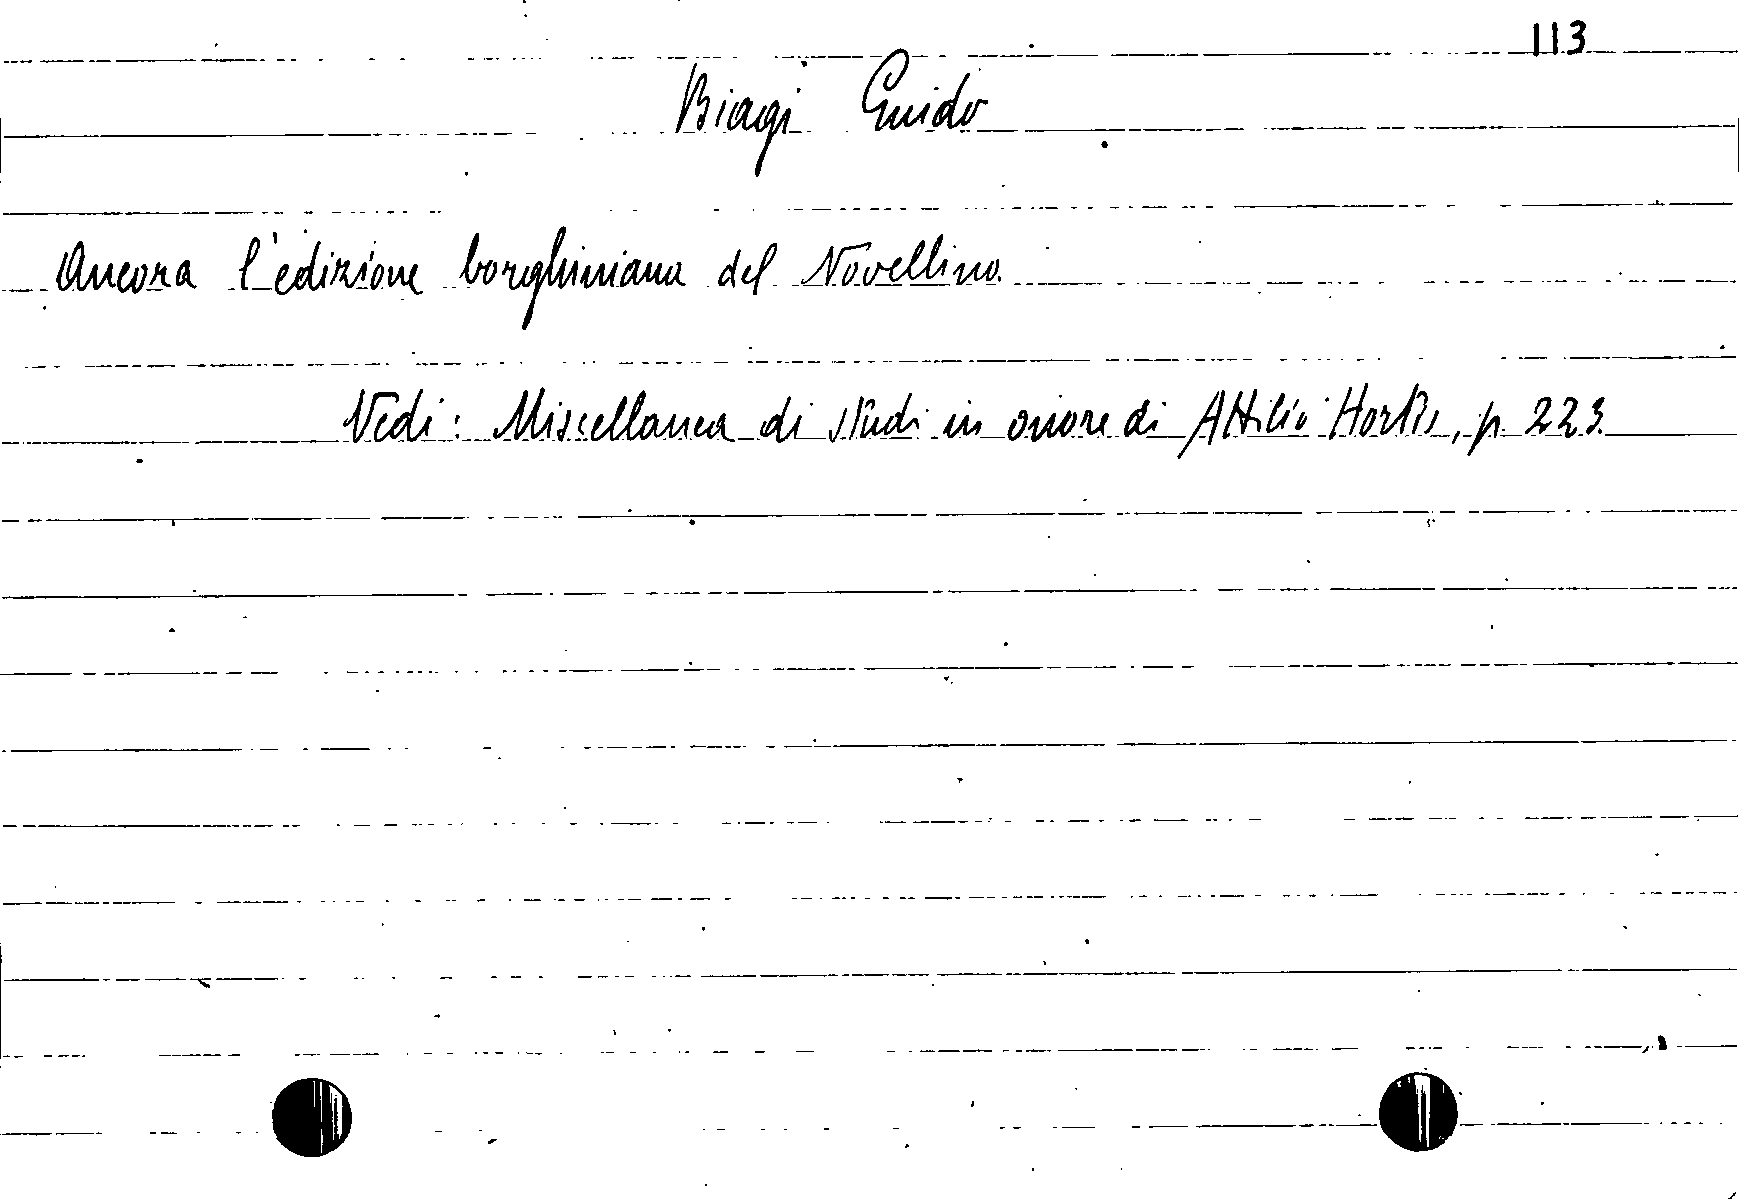 113
Biagi Guido
Ancora l'edizione borghiniana del Novellino.
Vedi: Miscellanea di studi in onore di Attilio Hortis, p. 223.